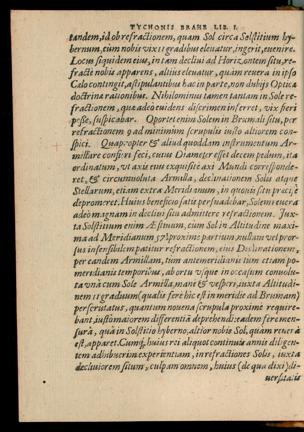 TYCHONIS BRAHE LIB. I.
tandem, id ob refractionem, quam Sol circa Solstitium hy-
bernum, cum nobis vix 11 gradibus eleuatur, ingerit, euenire.
Locus siquidem eius, in tam decliui ad Horizontem situ, re-
fractè nobis apparens, altius eleuatur, quam reuera in ipso
Cælo contingit, astipulantibus hac in parte, non dubijs Opticæ
doctrinæ rationibus. Nihilominus tamen tantam in Sole re-
fractionem, quæ adeò euidens discrimen inferret, vix fieri
posse, suspicabar. Oportet enim Solem in Brumali situ, per
refractionem 9 ad minimum scrupulis iusto altiorem con-
spici. Quapropter & aliud quoddam instrumentum Ar-
millare confieri feci, cuius Diameter esset decem pedum, ita
ordinatum, vt axis eius exquisitè axi Mundi corresponde-
ret, & circumuoluta Armilla, declinationem Solis atque
Stellarum, etiam extra Meridianum, in quouis situ præcisè
depromeret. Huius beneficio satis persuadebar, Solem reuera
adeò magnam in decliui situ admittere refractionem. Jux-
ta Solstitium enim Æstiuum, cum Sol in Altitudine maxi-
ma ad Meridianum 57½ proximè partium, nullam vel pror-
sus insensibilem patitur refractionem, eius Declinationem,
per eandem Armillam, tum antemeridianis tum etiam po-
meridianis temporibus, ab ortu vsque in occasum conuolu-
ta vnà cum Sole Armilla, manè & vesperi, iuxta Altitudi-
nem 11 graduum (qualis ferè hic est in meridie ad Brumam)
perscrutatus, quantum nouena scrupula proximè require-
bant, iusto maiorem differentiã deprehendi: eadem ferè men-
surâ, quâ in Solstitio hyberno, altior nobis Sol, quàm reuerà
est, apparet. Cumq; huius rei aliquot continuis annis diligen-
tem adhiberim experientiam, in refractiones Solis, iuxta
decliuiorem situm, culpam omnem, huius (de qua dixi) di-
uersitatis